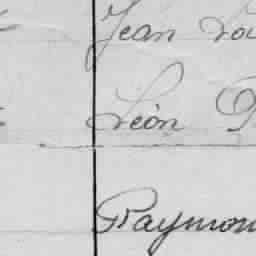 Jean Lou
Léon
Raymon